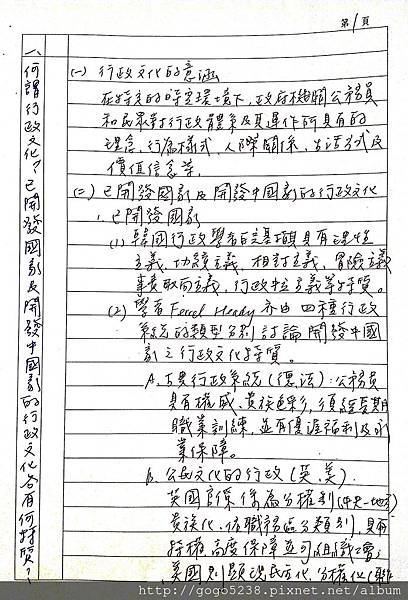 第1頁
一、何謂行政文化？已開發國家及開發中國家的行政文化各有何特質？
(一) 行政文化的意涵
在特定的時空環境下，政府機關公務員
和民眾對行政體系及其運作所具有的
理念、行為樣式、人際關係、生活方式及
價值信念等。
(二) 已開發國家及開發中國家的行政文化
1. 已開發國家
(1) 韓國行政學者白完基頃具有理性
主義、功績主義、相對主義、冒險主義
事實取向主義、行政中立主義等特質。
(2) 學者 Ferrel Heady 亦由四種行政
系統的類型分別討論開發中國
家之行政文化特質。
A. 古典行政系統（德法）：公務員
具有權威、貴族色彩，須經長期
職業訓練，並有優渥福利及永
業保障。
B. 公民文化的行政（英、美）
英國官係係為分權制（中央-地方）
貴族化、依職務區分類別，具有
特權、高度保障並可組織工會；
美國則顯現民主化、分權化（聯
http://gogo5238.pixnet.net/album